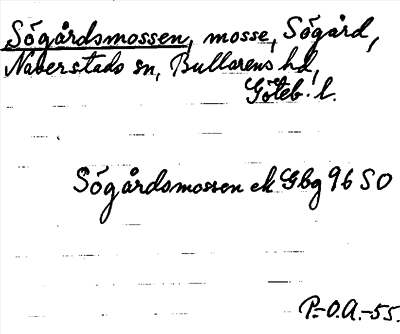 Sögårdsmossen, mosse, Sögård,
Naverstads sn, Bullarens hd,
Göteb. l.
Sögårdsmossen ek Gbg 96 SO
P.-O.A.-55.